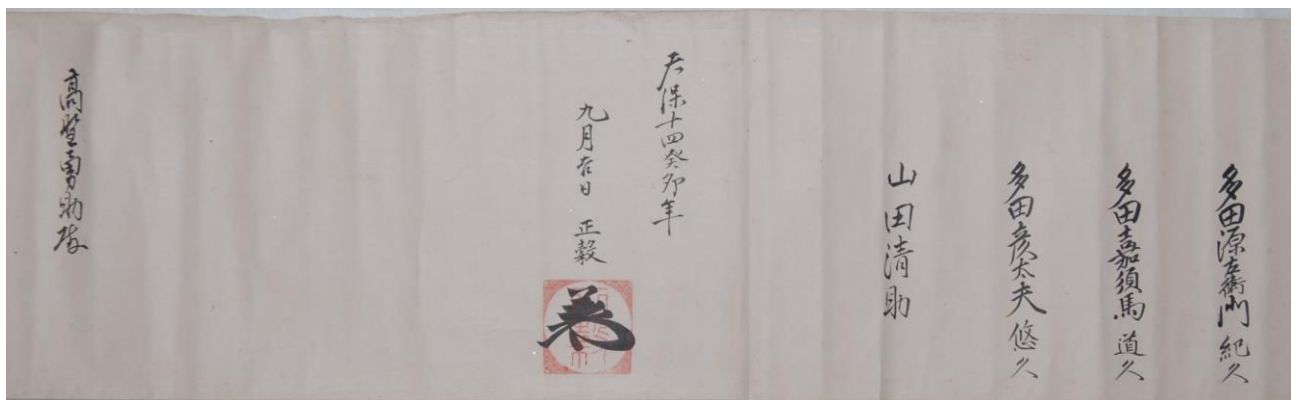 多田源左衛門 紀久
多田嘉須馬 道久
多田彦太夫 悠久
山田清助
天保十四癸卯年
九月吉日 正毅
高埜勇助殿